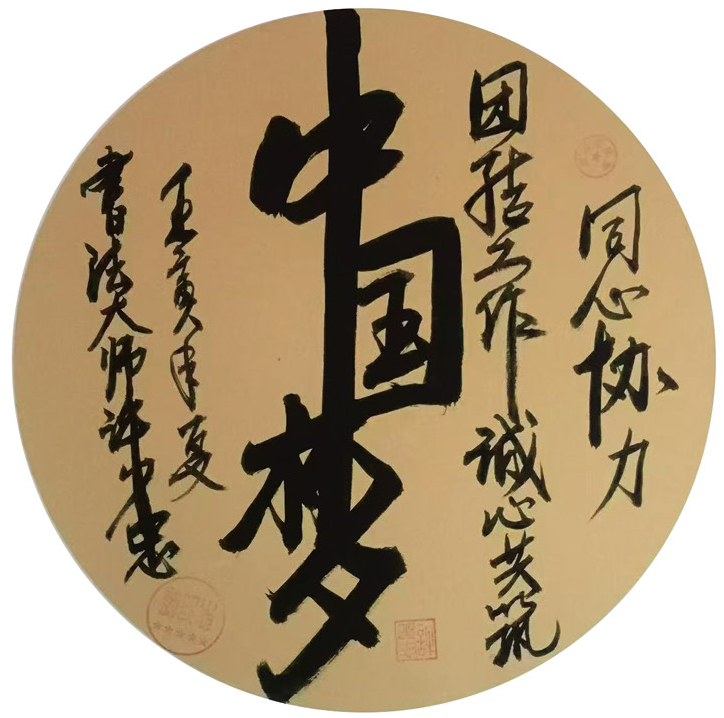 同心协力
团结工作诚心共筑
中国梦
壬寅年夏
书法大师许学忠